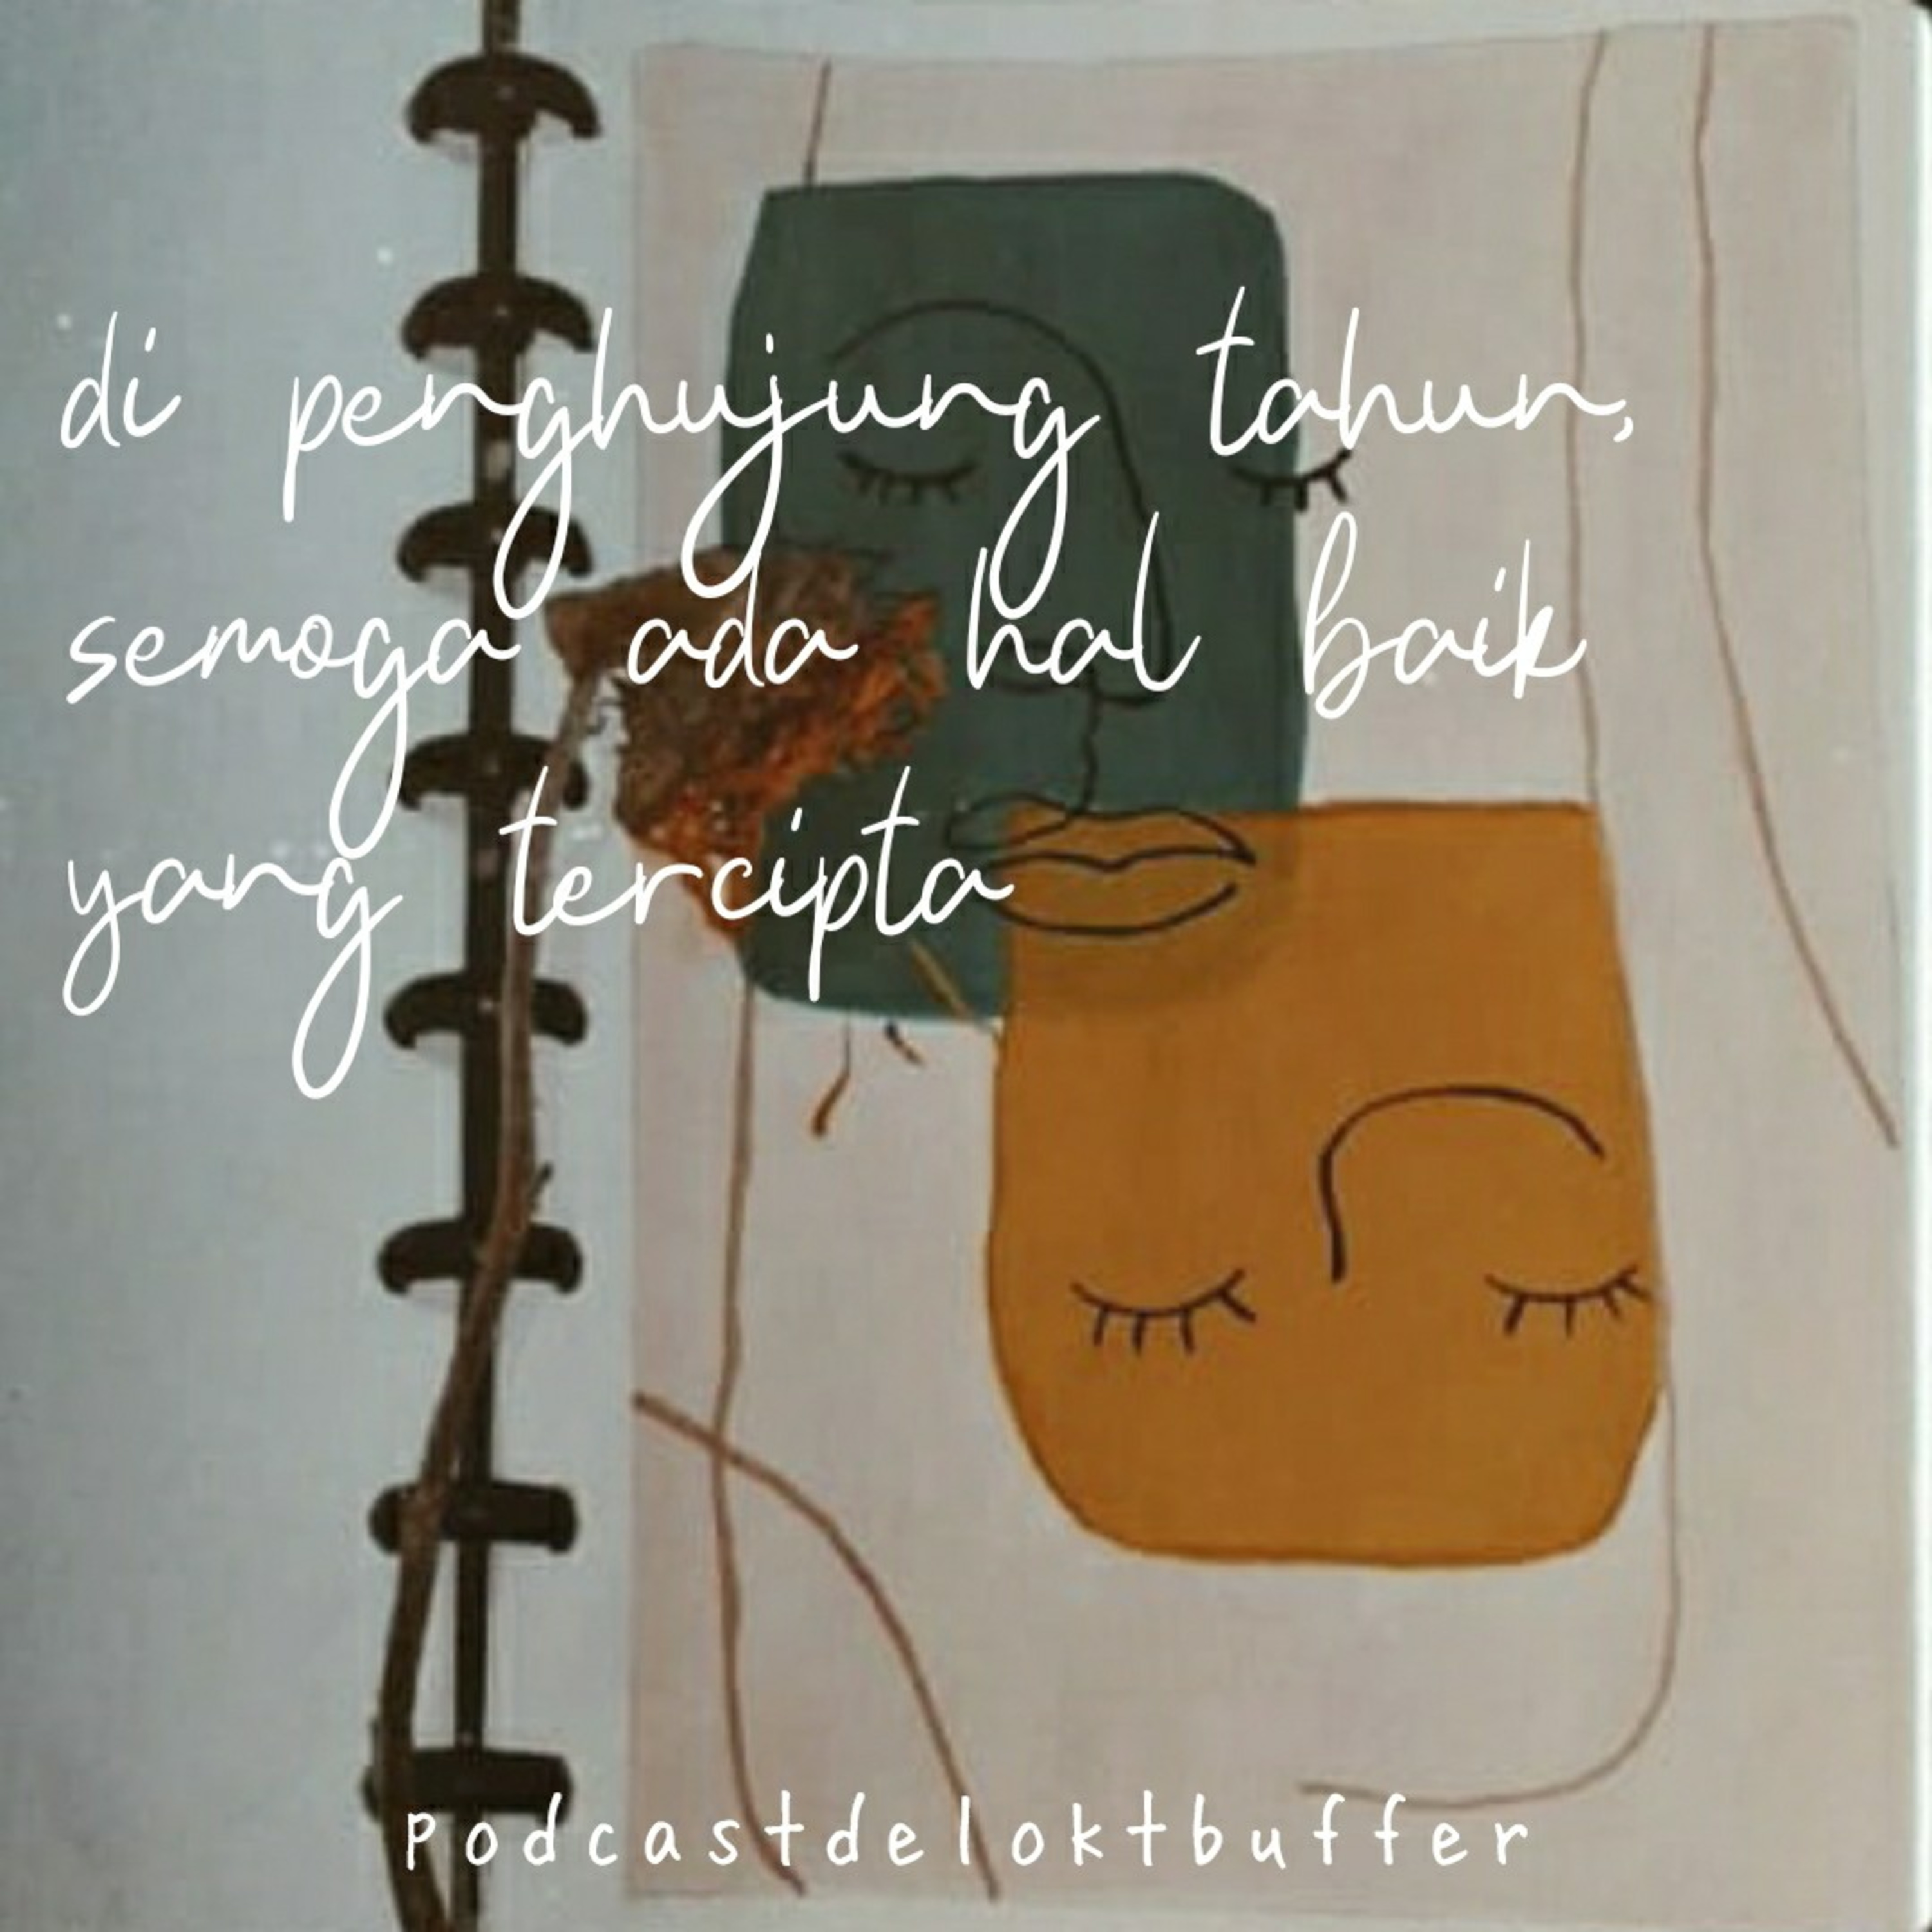 di penghujung tahun,
semoga ada hal baik
yang tercipta
podcastdeloktbuffer